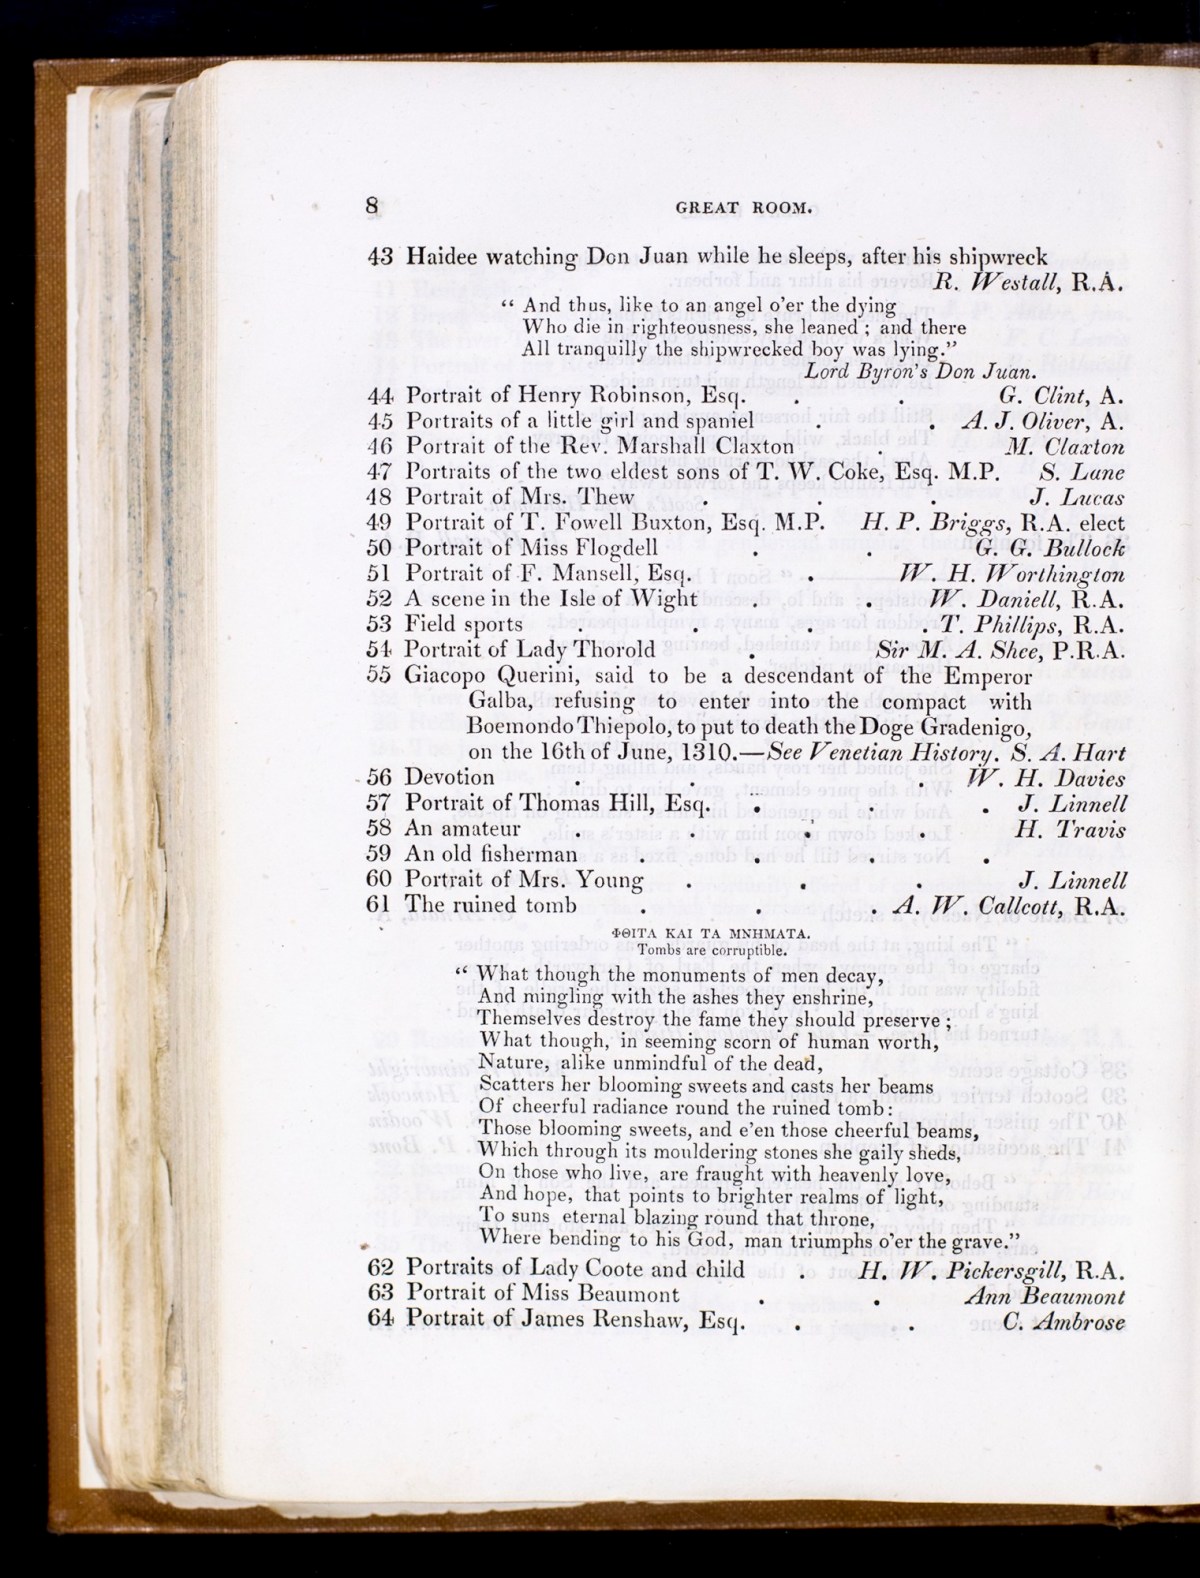 8 GREAT ROOM.
43 Haidee watching Don Juan while he sleeps, after his shipwreck
R. Westall, R.A.
“ And thus, like to an angel o’er the dying
Who die in righteousness, she leaned ; and there
All tranquilly the shipwrecked boy was lying.”
Lord Byron’s Don Juan.
44 Portrait of Henry Robinson, Esq. . . G. Clint, A.
45 Portraits of a little girl and spaniel . . A. J. Oliver, A.
46 Portrait of the Rev. Marshall Claxton . M. Claxton
47 Portraits of the two eldest sons of T. W. Coke, Esq. M.P. S. Lane
48 Portrait of Mrs. Thew . . . J. Lucas
49 Portrait of T. Fowell Buxton, Esq. M.P. H. P. Briggs, R.A. elect
50 Portrait of Miss Flogdell . . G. G. Bullock
51 Portrait of F. Mansell, Esq. . W. H. Worthington
52 A scene in the Isle of Wight . . W. Daniell, R.A.
53 Field sports . . . T. Phillips, R.A.
54 Portrait of Lady Thorold . Sir M. A. Shee, P.R.A.
55 Giacopo Querini, said to be a descendant of the Emperor
Galba, refusing to enter into the compact with
Boemondo Thiepolo, to put to death the Doge Gradenigo,
on the 16th of June, 1310.—See Venetian History. S. A. Hart
56 Devotion . . . . W. H. Davies
57 Portrait of Thomas Hill, Esq. . . . J. Linnell
58 An amateur . . . . H. Travis
59 An old fisherman . . . .
60 Portrait of Mrs. Young . . . J. Linnell
61 The ruined tomb . . . A. W. Callcott, R.A.
ΦΘΙΤΑ ΚΑΙ ΤΑ ΜΝΗΜΑΤΑ.
Tombs are corruptible.
“ What though the monuments of men decay,
And mingling with the ashes they enshrine,
Themselves destroy the fame they should preserve ;
What though, in seeming scorn of human worth,
Nature, alike unmindful of the dead,
Scatters her blooming sweets and casts her beams
Of cheerful radiance round the ruined tomb :
Those blooming sweets, and e’en those cheerful beams,
Which through its mouldering stones she gaily sheds,
On those who live, are fraught with heavenly love,
And hope, that points to brighter realms of light,
To suns eternal blazing round that throne,
Where bending to his God, man triumphs o’er the grave.”
62 Portraits of Lady Coote and child . H. W. Pickersgill, R.A.
63 Portrait of Miss Beaumont . . Ann Beaumont
64 Portrait of James Renshaw, Esq. . . C. Ambrose